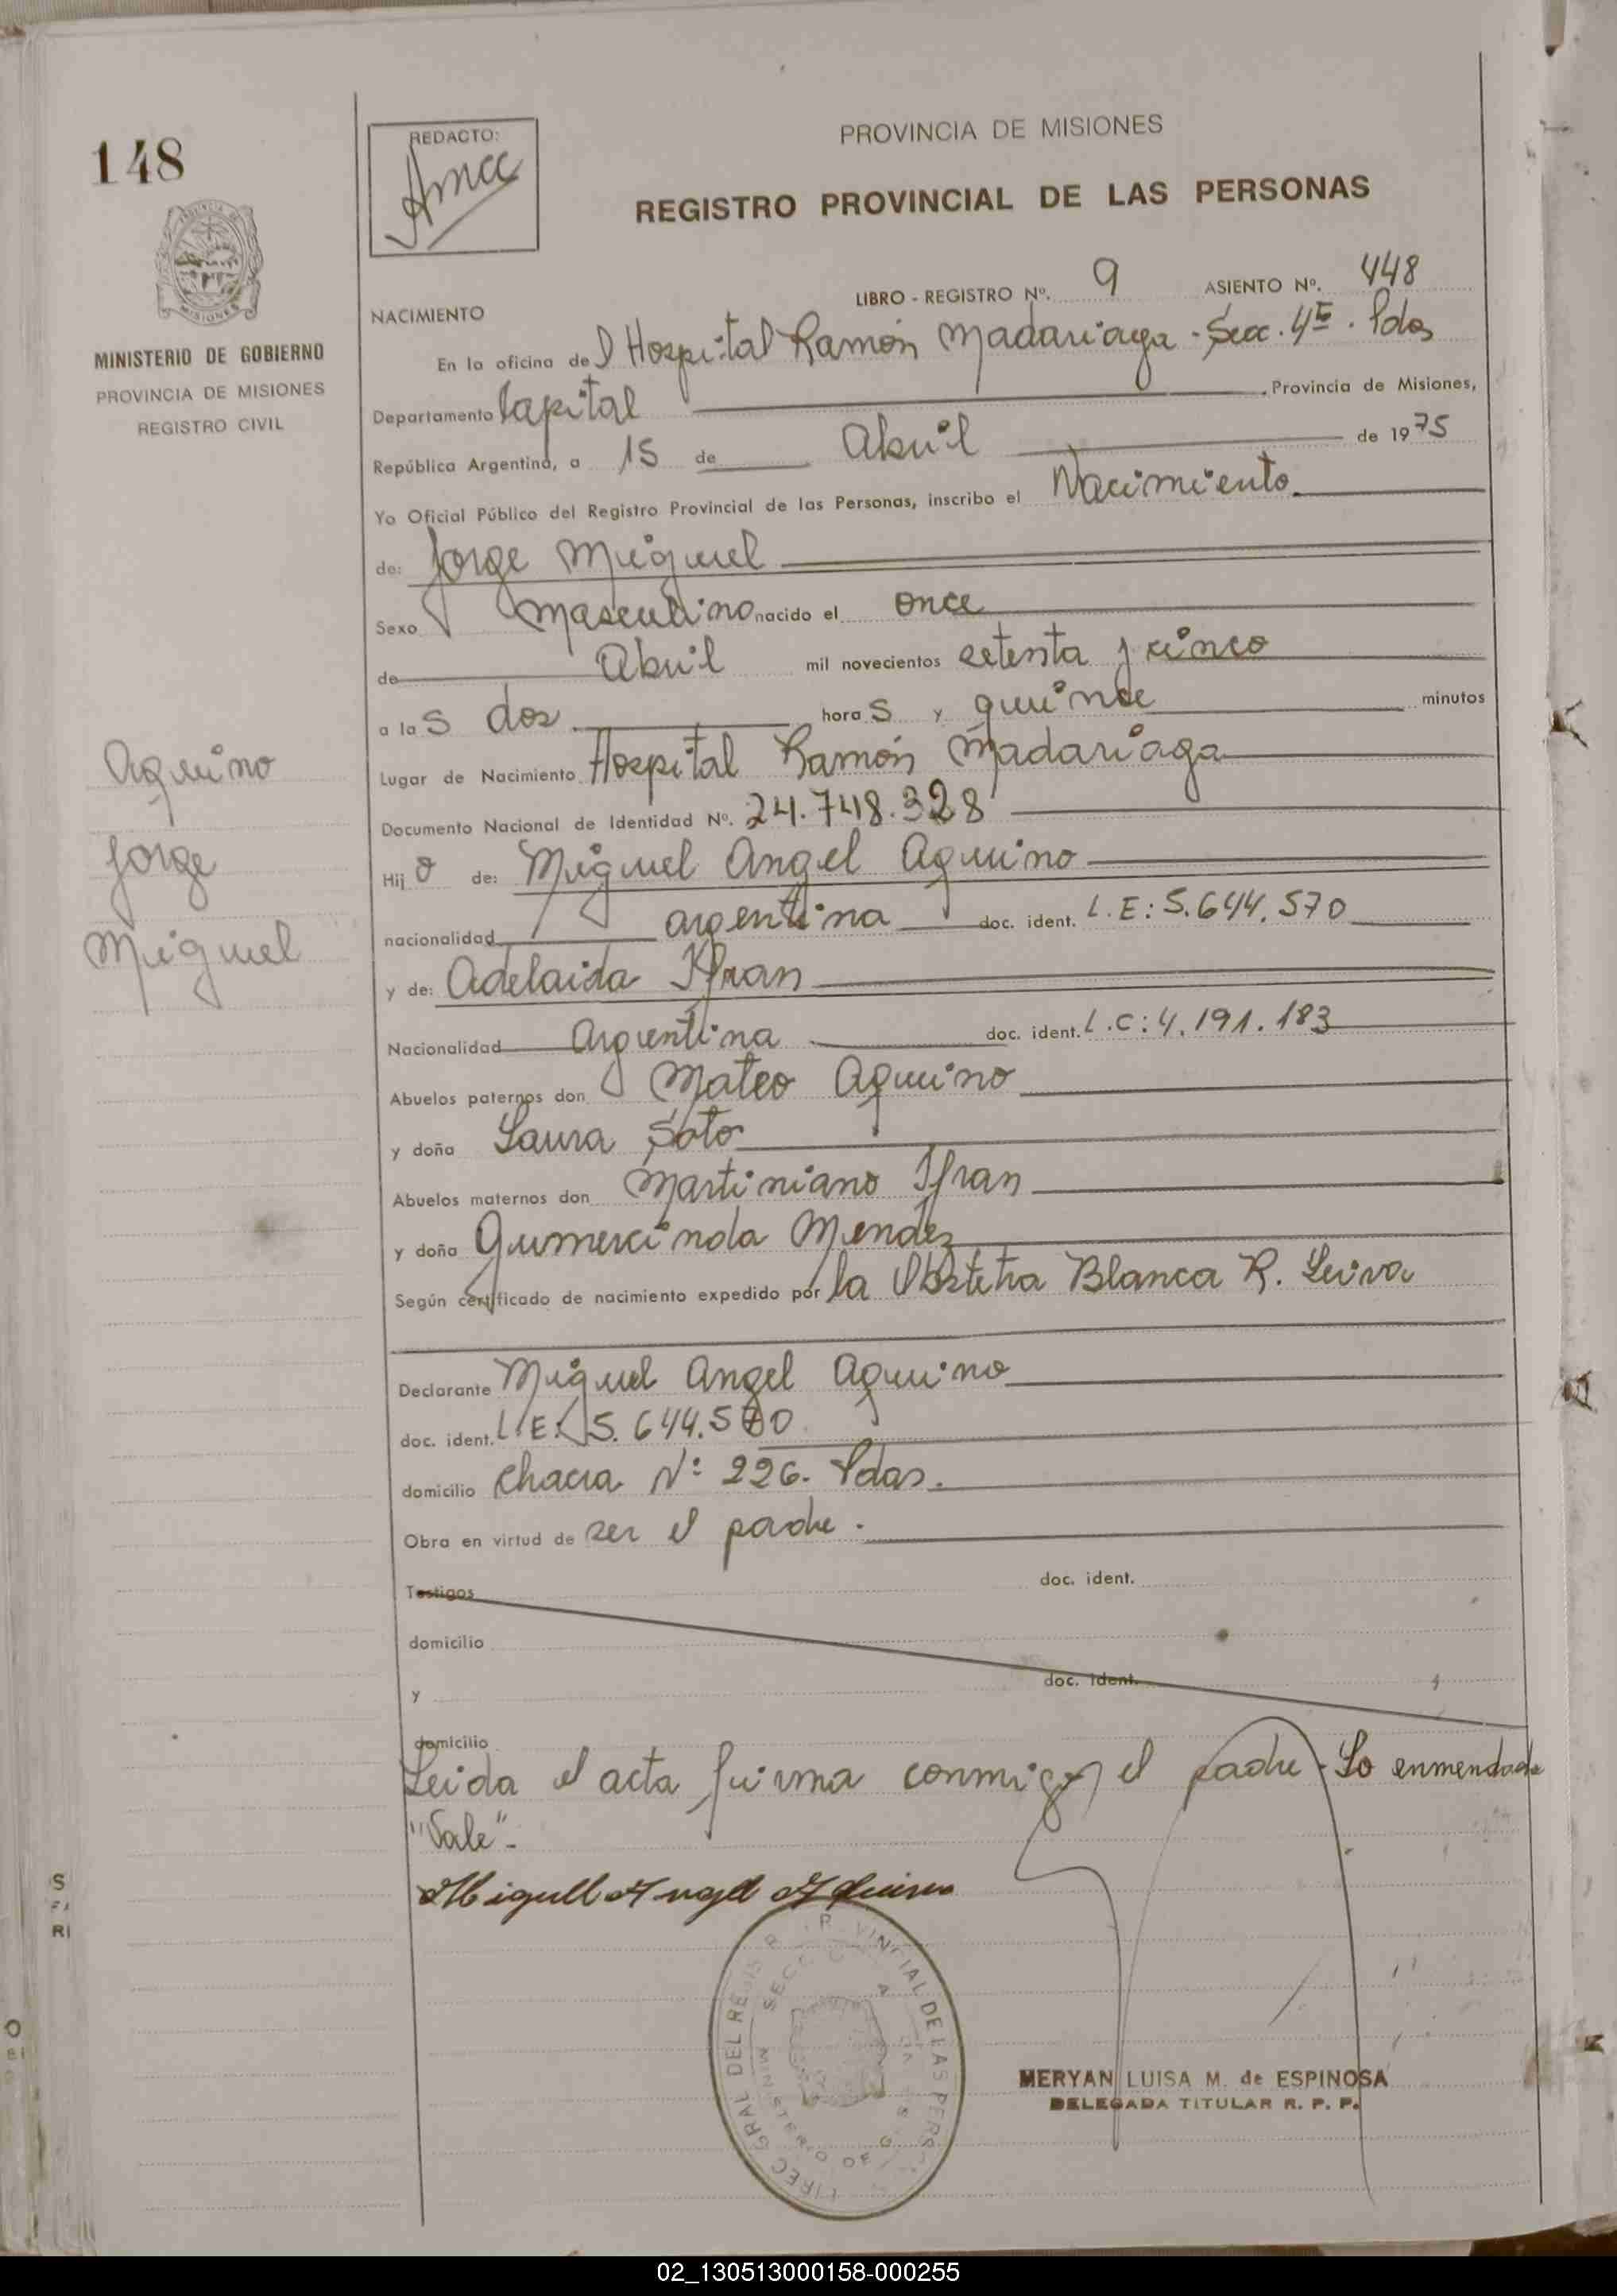 148
REDACTO:
PROVINCIA DE MISIONES
REGISTRO PROVINCIAL DE LAS PERSONAS
MINISTERIO DE GOBIERNO
PROVINCIA DE MISIONES
REGISTRO CIVIL
LIBRO - REGISTRO Nº. 9 ASIENTO Nº. 448
NACIMIENTO
En la oficina del Hospital Ramón Madariaga - Secc. 4ª. Pdas
Departamento Capital, Provincia de Misiones,
República Argentina, a 15 de Abril de 1975
Yo Oficial Público del Registro Provincial de las Personas, inscribo el Nacimiento.
de: Jorge Miguel
Sexo Masculino nacido el once
de Abril mil novecientos setenta y cinco
a las dos horas y quince minutos
Lugar de Nacimiento Hospital Ramón Madariaga
Documento Nacional de Identidad Nº. 24.748.328
Hijo de: Miguel Angel Aquino
nacionalidad argentina doc. ident. L.E: 5.644.570
y de: Adelaida Ifran
Nacionalidad Argentina doc. ident. L.C: 4.191.183
Abuelos paternos don Mateo Aquino
y doña Laura Soto
Abuelos maternos don Martiniano Ifran
y doña Gumercinda Mendez
Según certificado de nacimiento expedido por la Obstetra Blanca R. Leiva
Declarante Miguel Angel Aquino
doc. ident. L.E: 5.644.570
domicilio Chacra Nº: 226. Pdas.
Obra en virtud de ser el padre.
Testigos doc. ident.
domicilio
y doc. ident.
domicilio
Leida el acta firma conmigo el padre - Lo enmendado
"Vale"-
Miguell Angel Aquino
MERYAN LUISA M. de ESPINOSA
DELEGADA TITULAR R. P. P.
Aquino
Jorge
Miguel
02_130513000158-000255